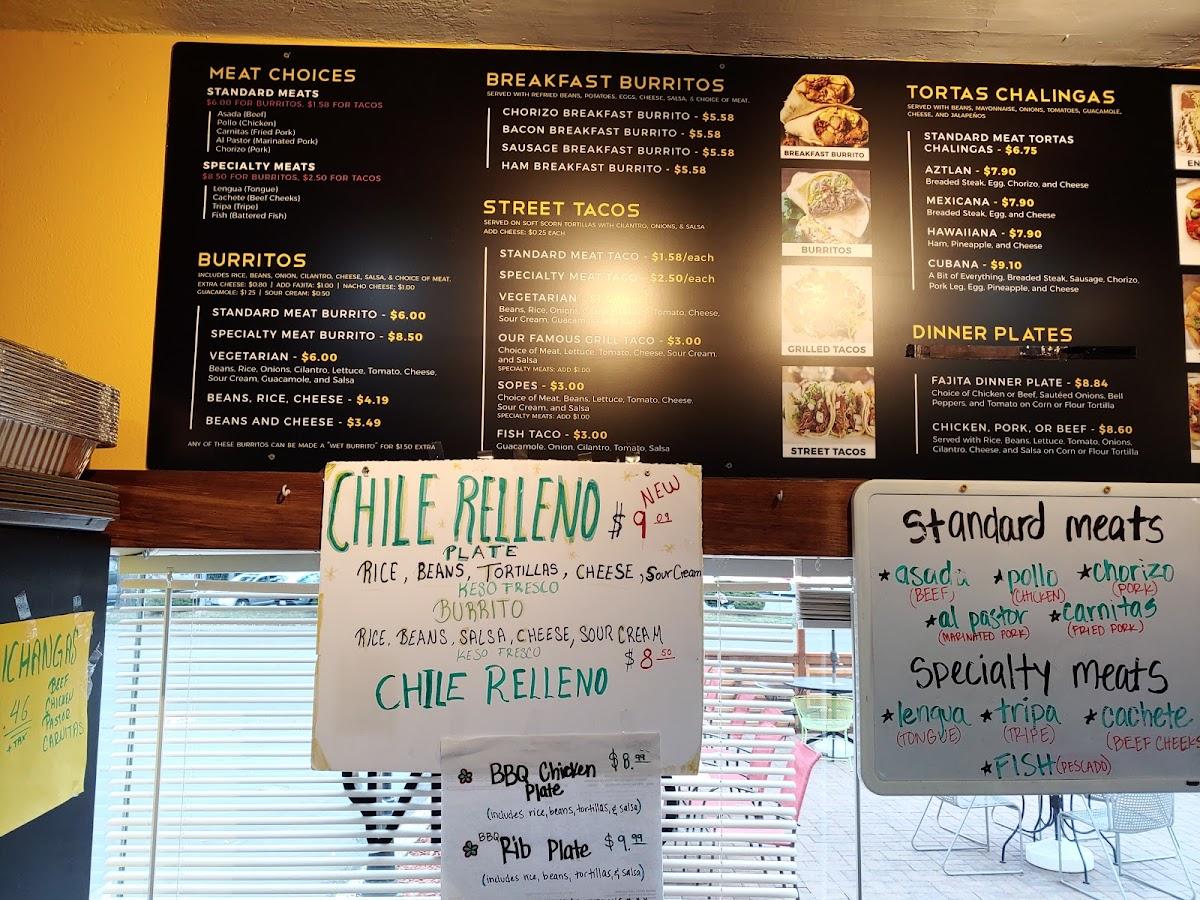 MEAT CHOICES
STANDARD MEATS
$6.00 FOR BURRITOS, $1.58 FOR TACOS
Asada (Beef)
Pollo (Chicken)
Carnitas (Fried Pork)
Al Pastor (Marinated Pork)
Chorizo (Pork)
SPECIALTY MEATS
$8.50 FOR BURRITOS, $2.50 FOR TACOS
Lengua (Tongue)
Cachete (Beef Cheeks)
Tripa (Tripe)
Fish (Battered Fish)
BURRITOS
INCLUDES RICE, BEANS, ONION, CILANTRO, CHEESE, SALSA, & CHOICE OF MEAT.
EXTRA CHEESE: $0.80 | ADD FAJITA: $1.00 | NACHO CHEESE: $1.00
GUACAMOLE: $1.25 | SOUR CREAM: $0.50
STANDARD MEAT BURRITO - $6.00
SPECIALTY MEAT BURRITO - $8.50
VEGETARIAN - $6.00
Beans, Rice, Onions, Cilantro, Lettuce, Tomato, Cheese,
Sour Cream, Guacamole, and Salsa
BEANS, RICE, CHEESE - $4.19
BEANS AND CHEESE - $3.49
ANY OF THESE BURRITOS CAN BE MADE A "WET BURRITO" FOR $1.50 EXTRA
BREAKFAST BURRITOS
SERVED WITH REFRIED BEANS, POTATOES, EGGS, CHEESE, SALSA, & CHOICE OF MEAT.
CHORIZO BREAKFAST BURRITO - $5.58
BACON BREAKFAST BURRITO - $5.58
SAUSAGE BREAKFAST BURRITO - $5.58
HAM BREAKFAST BURRITO - $5.58
STREET TACOS
SERVED ON SOFT 5CORN TORTILLAS WITH CILANTRO, ONIONS, & SALSA
ADD CHEESE: $0.25 EACH
STANDARD MEAT TACO - $1.58/each
SPECIALTY MEAT TACO - $2.50/each
VEGETARIAN
Beans, Rice, Onions, Tomato, Cheese,
Sour Cream, Guacamole
OUR FAMOUS GRILL TACO - $3.00
Choice of Meat, Lettuce, Tomato, Cheese, Sour Cream,
and Salsa
SPECIALTY MEATS: ADD $1.00
SOPES - $3.00
Choice of Meat, Beans, Lettuce, Tomato, Cheese,
Sour Cream, and Salsa
SPECIALTY MEATS: ADD $1.00
FISH TACO - $3.00
Guacamole, Onion, Cilantro, Tomato, Salsa
BREAKFAST BURRITO
BURRITOS
GRILLED TACOS
STREET TACOS
TORTAS CHALINGAS
SERVED WITH BEANS, MAYONNAISE, ONIONS, TOMATOES, GUACAMOLE,
CHEESE, AND JALAPEÑOS
STANDARD MEAT TORTAS
CHALINGAS - $6.75
AZTLAN - $7.90
Breaded Steak, Egg, Chorizo, and Cheese
MEXICANA - $7.90
Breaded Steak, Egg, and Cheese
HAWAIIANA - $7.90
Ham, Pineapple, and Cheese
CUBANA - $9.10
A Bit of Everything, Breaded Steak, Sausage, Chorizo,
Pork Leg, Egg, Pineapple, and Cheese
DINNER PLATES
FAJITA DINNER PLATE - $8.84
Choice of Chicken or Beef, Sautéed Onions, Bell
Peppers, and Tomato on Corn or Flour Tortilla
CHICKEN, PORK, OR BEEF - $8.60
Served with Rice, Beans, Lettuce, Tomato, Onions,
Cilantro, Cheese, and Salsa on Corn or Flour Tortilla
EN
CHILE RELLENO $9.09 NEW
PLATE
RICE, BEANS, TORTILLAS, CHEESE, Sour Cream
KESO FRESCO
BURRITO
RICE, BEANS, SALSA, CHEESE, SOUR CREAM
KESO FRESCO $8.50
CHILE RELLENO
BBQ Chicken $8.99
Plate
(includes rice, beans, tortillas, & salsa)
BBQ Rib Plate $9.99
(includes rice, beans, tortillas, & salsa)
Standard meats
*asada *pollo *chorizo
(BEEF) (CHICKEN) (PORK)
*al pastor *carnitas
(MARINATED PORK) (FRIED PORK)
Specialty meats
*lengua *tripa *cachete
(TONGUE) (TRIPE) (BEEF CHEEKS
*FISH (PESCADO)
ICHANGAS
BEEF
CHICKEN
PASTOR
CARNITAS
46
+ TAX